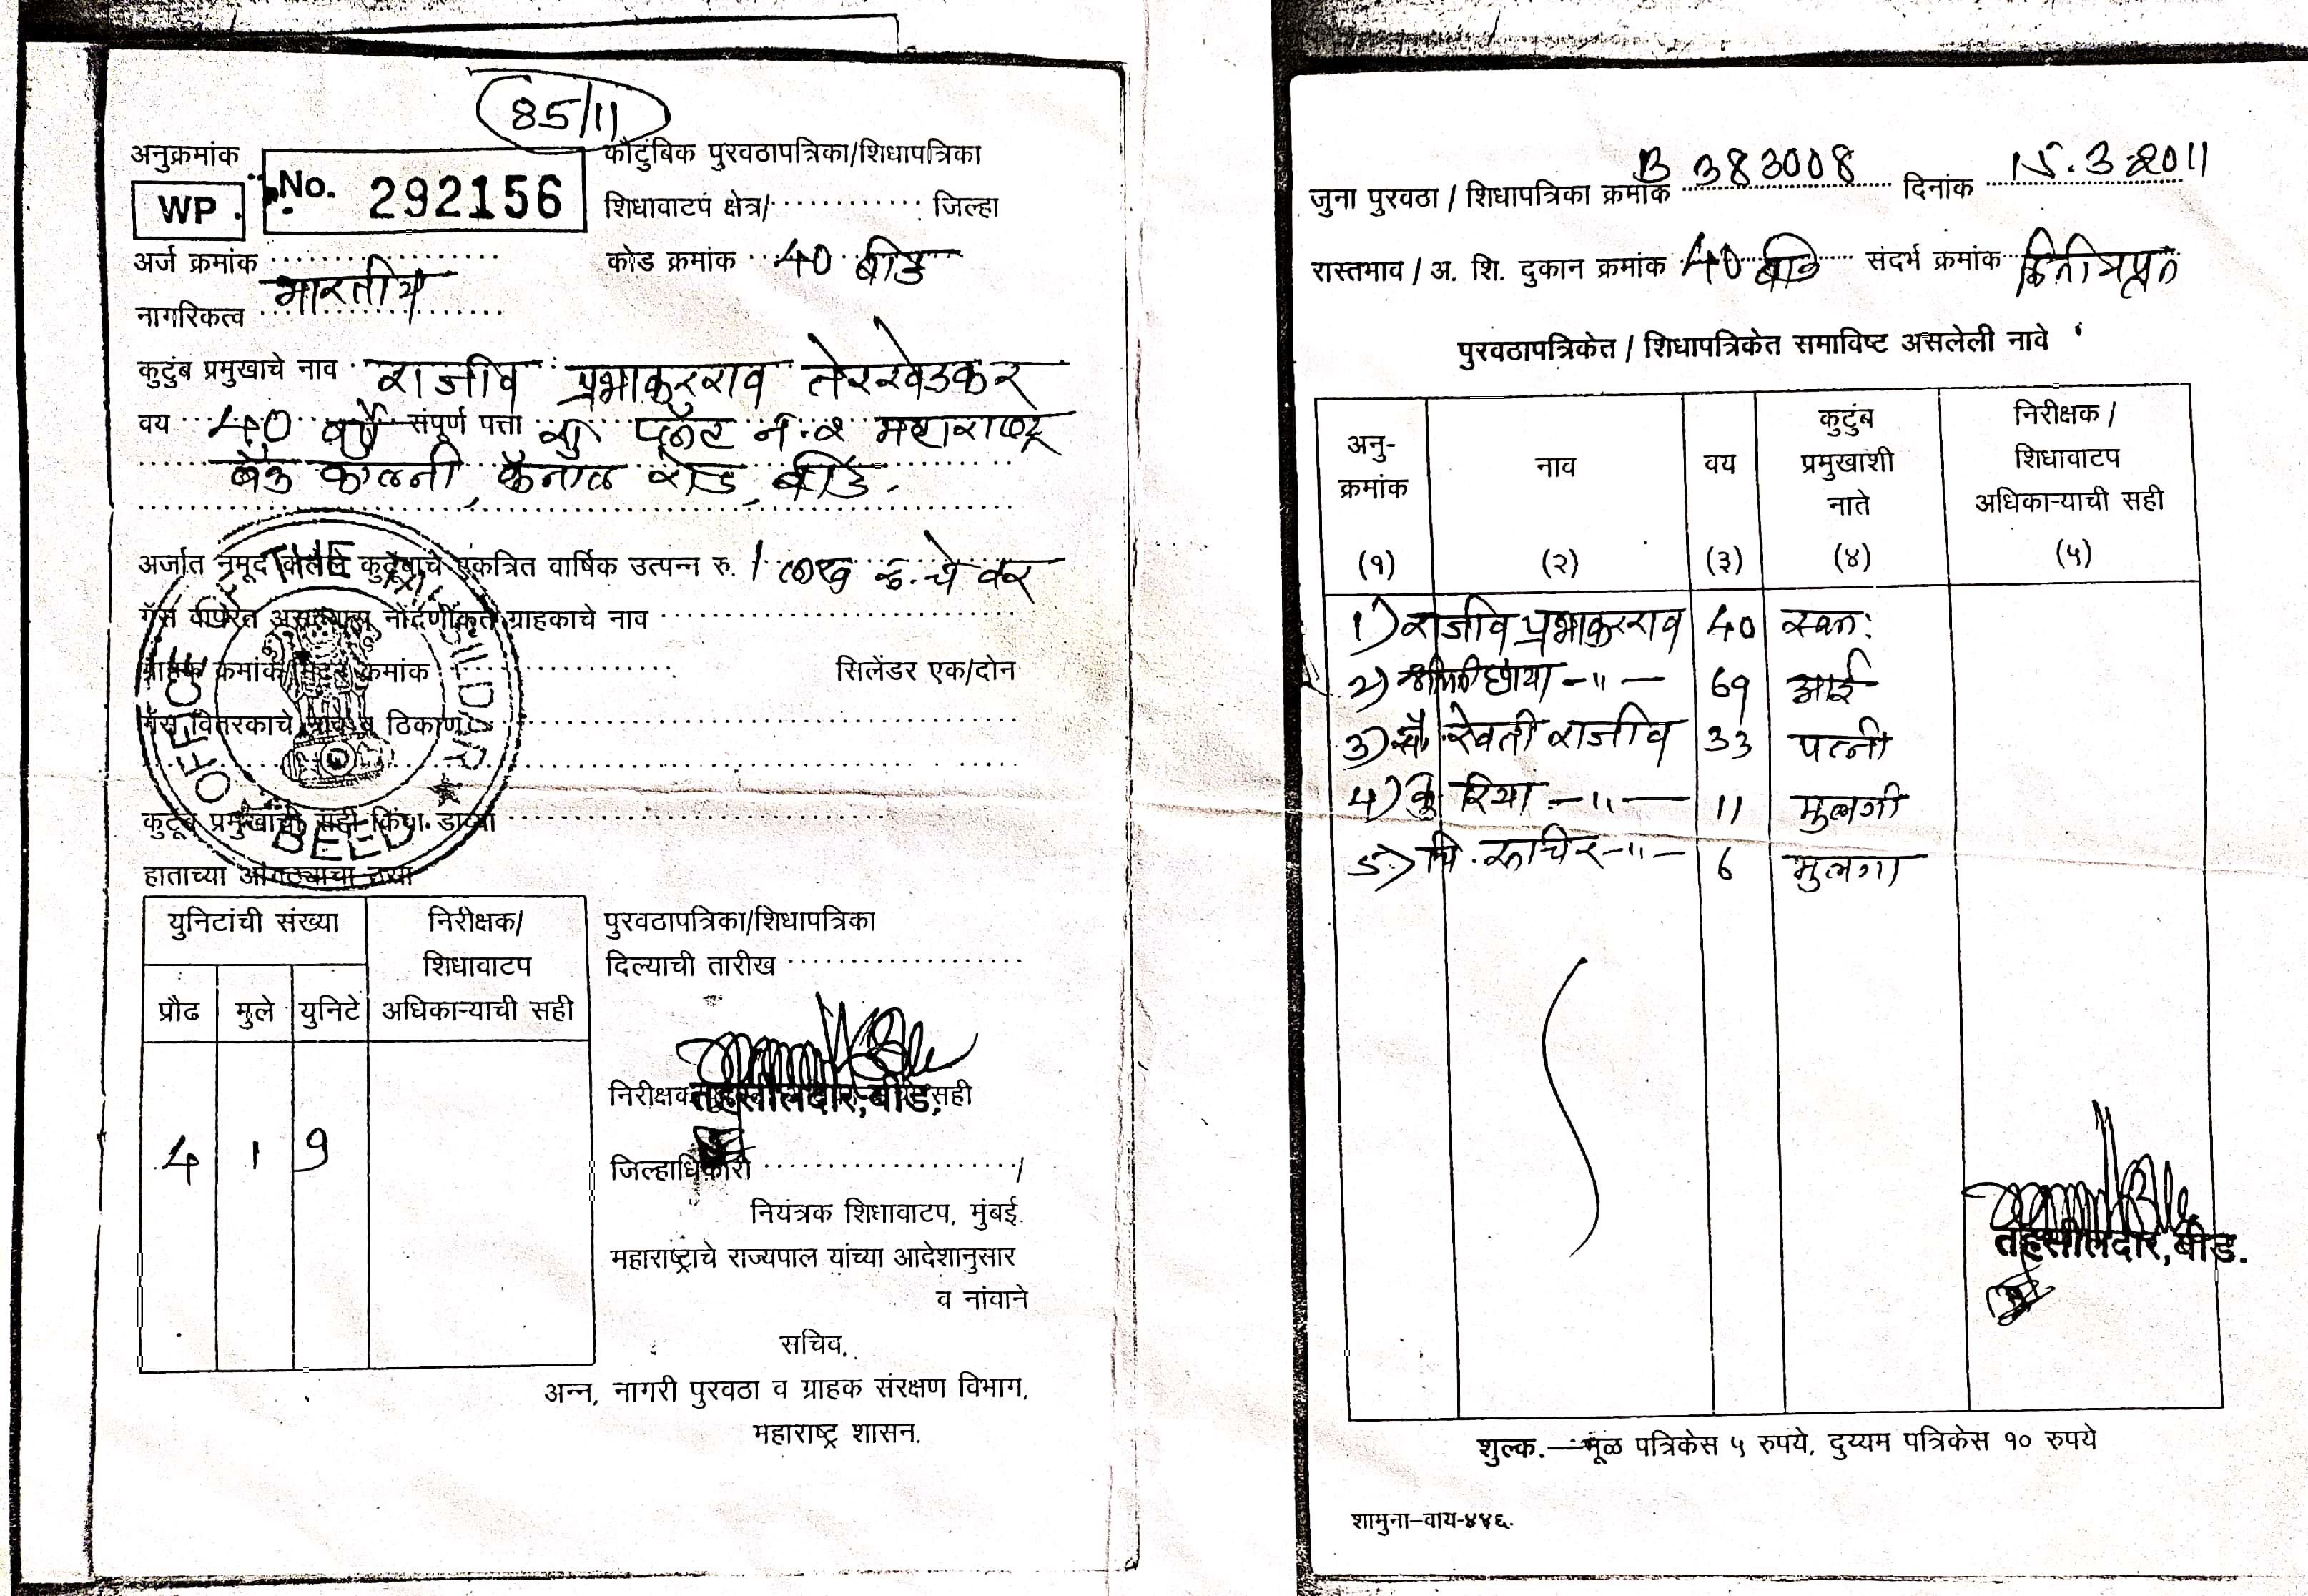 85/11
अनुक्रमांक
No. 292156
WP
कौटुंबिक पुरवठापत्रिका/शिधापत्रिका
शिधावाटप क्षेत्र/ ............ जिल्हा
कोड क्रमांक 40 बीड
अर्ज क्रमांक
नागरिकत्व भारतीय
कुटुंब प्रमुखाचे नाव राजीव प्रभाकरराव तेरखेडकर
वय 40 वर्षे संपूर्ण पत्ता रा प्लॅट नं.२ महाराष्ट्र
बँक कालनी, कॅनाल रोड, बीड.
अर्जात नमूद केलेले कुटुंबाचे एकत्रित वार्षिक उत्पन्न रु. 1 लाख रु.चे वर
गॅस वापरित असल्यास नोंदणीकृत ग्राहकाचे नाव
ग्राहक क्रमांक/मिटर क्रमांक सिलेंडर एक/दोन
गॅस वितरकाचे नाव व ठिकाण
कुटुंब प्रमुखाची सही किंवा डाव्या
हाताच्या आंगठ्याचा ठसा
OFFICE OF THE TAHSILDAR BEED
युनिटांची संख्या
निरीक्षक/
शिधावाटप
अधिकाऱ्याची सही
प्रौढ मुले युनिटे
4 1 9
पुरवठापत्रिका/शिधापत्रिका
दिल्याची तारीख
निरीक्षक सही
तहसीलदार, बीड.
जिल्हाधिकारी /
नियंत्रक शिधावाटप, मुंबई.
महाराष्ट्राचे राज्यपाल यांच्या आदेशानुसार
व नांवाने
सचिव,
अन्न, नागरी पुरवठा व ग्राहक संरक्षण विभाग,
महाराष्ट्र शासन.
जुना पुरवठा / शिधापत्रिका क्रमांक B 383008 दिनांक 15.3.2011
रास्तभाव / अ. शि. दुकान क्रमांक 40 बीड संदर्भ क्रमांक
पुरवठापत्रिकेत / शिधापत्रिकेत समाविष्ट असलेली नावे
अनु-क्रमांक नाव वय कुटुंब प्रमुखाशी नाते निरीक्षक / शिधावाटप अधिकाऱ्याची सही
(१) (२) (३) (४) (५)
1) राजीव प्रभाकरराव 40 स्वतः
2) श्रीमती छाया -"- 69 आई
3) सौ. रेवती राजीव 33 पत्नी
4) कु रिया -"- 11 मुलगी
5) चि. रुचिर -"- 6 मुलगा
तहसीलदार, बीड.
शुल्क.—मूळ पत्रिकेस ५ रुपये, दुय्यम पत्रिकेस १० रुपये
शामुना-वाय-४४६.